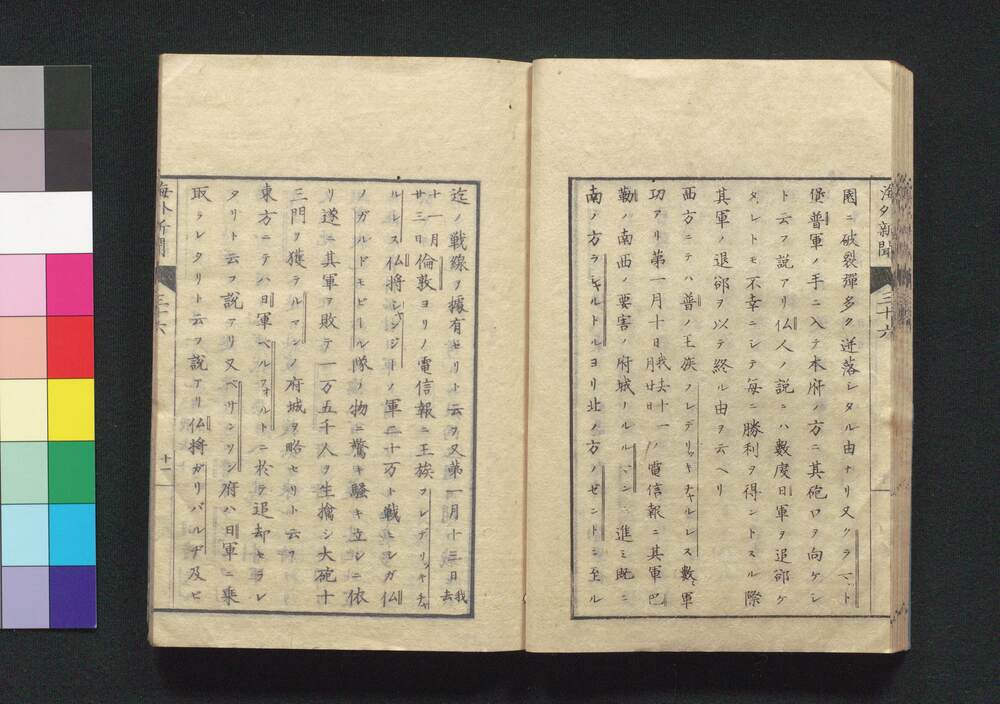 海外新聞 三十六
園ニ破裂彈多ク迸落シタル由ナリ又クラマート
堡普軍ノ手ニ入テ本府ノ方ニ其砲口ヲ向ケシ
ト云フ説アリ仏人ノ説ニハ數度日軍ヲ追郤ケ
タレトモ不幸ニシテ每ニ勝利ヲ得ントスル際
其軍ノ退郤ヲ以テ終ル由ヲ云ヘリ
西方ニテハ普ノ王族フレデリッキチャルレス數〻軍
功アリ第一月十日我去十一月廿日ノ電信報ニ其軍巴
勒ノ南西ノ要害ノ府城ルルマンニ進ミ既ニ
南ノ方ラシャルトルヨリ北ノ方ノゼントニ至ル
迄ノ戦線ヲ據有セリト云フ又第一月十三日我去
十一月廿三日倫敦ヨリノ電信報ニ王族フレデリッキチャ
ルレス仏將シャンジーノ軍二十万ト戰ヒシガ仏
ノガルドモビール隊ノ物ニ驚キ騒キ立シニ依
リ遂ニ其軍ヲ敗テ一万五千人ヲ生擒シ大砲十
三門ヲ獲テルマンノ府城ヲ略セリト云フ
東方ニテハ日軍ベルフォルトニ於テ追却セラレ
タリト云フ説アリ又ベサンソン府ハ日軍ニ乘
取ラレタリト云フ説アリ仏將ガリバルヂ及ヒ
海外新聞 三十六 十一